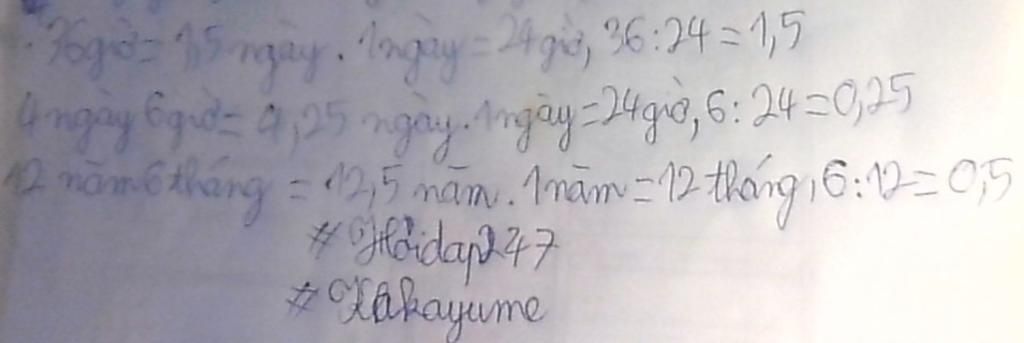 . 36 giờ = 1,5 ngày. 1 ngày = 24 giờ, 36 : 24 = 1,5
4 ngày 6 giờ = 4,25 ngày. 1 ngày = 24 giờ, 6 : 24 = 0,25
12 năm 6 tháng = 12,5 năm. 1 năm = 12 tháng, 6 : 12 = 0,5
# Hỏidap247
# Kakayume